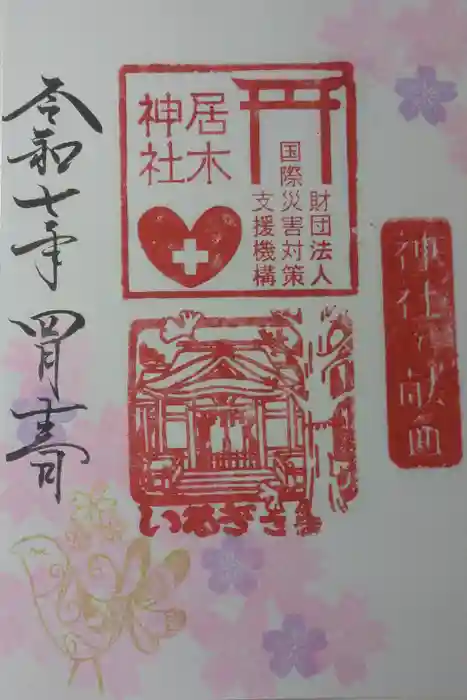 神社で献血
居木
神社
財団法人
国際災害対策
支援機構
いるぎさま
令和七年四月吉日